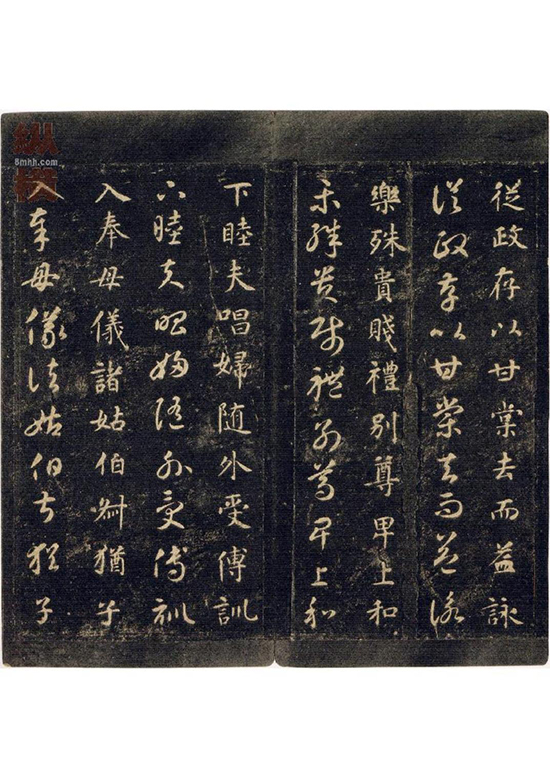 從政存以甘棠去而益詠
從政存以甘棠去而益詠
樂殊貴賤禮別尊卑上和
樂殊貴賤禮別尊卑上和
下睦夫唱婦随外受傳訓
下睦夫唱婦随外受傳訓
入奉母儀諸姑伯叔猶子
入奉母儀諸姑伯叔猶子
纵横
8mhh.com